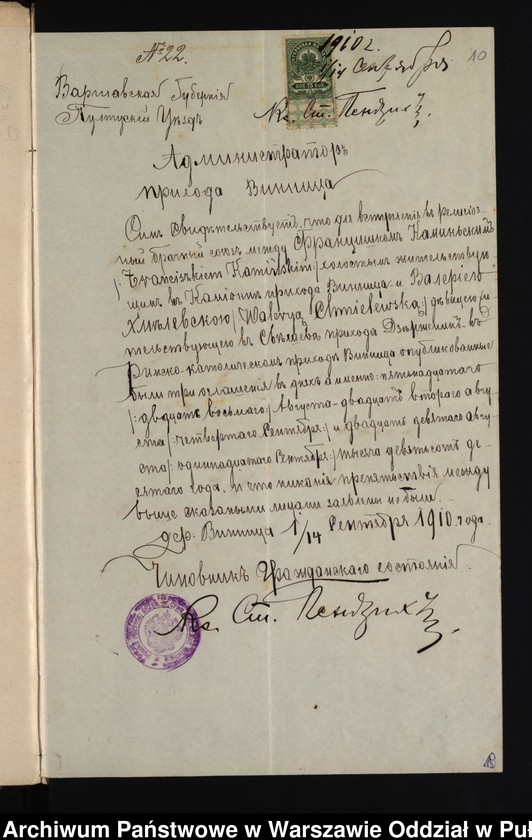 № 22.
1910 г.
1/14 Сентября
10
Варшавская Губернія
Пултускій Уездъ
Кс. Ст. Пендзих
Администраторъ
прихода Винница
Симъ свидѣтельствуетъ, что для вступленія въ религіоз-
ный брачный союзъ между Францишкомъ Каминьскимъ
/: Franciszkiem Kamińskim :/ холостымъ жительствую-
щимъ въ прихода Винница и Валеріею
Хмѣлевскою /: Waleryą Chmielewską :/ дѣвицею жи-
тельствующею въ прихода въ
Римско-католическомъ приходѣ Винница опубликованные
были три оглашенія въ дняхъ а именно: пятьнадцатаго
/: двадцать восьмаго :/ Августа двадцать втораго авгу-
ста /: четвертаго Сентября :/ и двадцать девятаго авгу-
ста /: одиннадцатаго Сентября :/ тысяча девятьсотъ де-
сятаго года, и что никакія препятствія между
выше сказаными лицами заявлены не были.
дер. Винница 1/14 Сентября 1910 года.
Чиновникъ Гражданскаго состоянія
Кс. Ст. Пендзих
Archiwum Państwowe w Warszawie Oddział w Puł